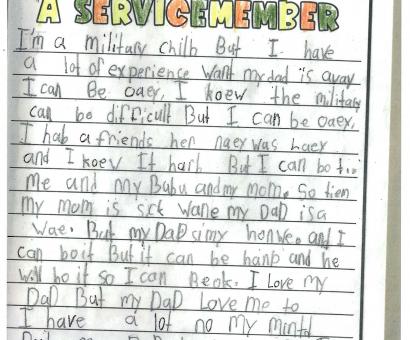 A SERVICEMEMBER
I'm a military chilb But I have
a lot of experience Want my dad is avay
I can Be oaey, I koew the military
can be difficult But I can be oaex,
I hab a friends her naey was Laey
and I koev It harb But I can bo
me and my Babu and my mom. So tiem
my mom is sck wane my DaD is a
wae. But my DaD si my honwe. and I
can bo it But it can be hanb and he
will bo it so I can Beok. I Love my
DaD But my DaD Love me to
I have a lot no my mintd